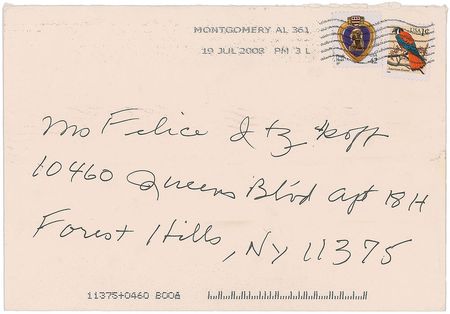 MONTGOMERY AL 361
19 JUL 2008 PM 3 L
42
1c
Ms Felice Itzkoff
10460 Queens Blvd apt 18H
Forest Hills, NY 11375
11375+0460 B008